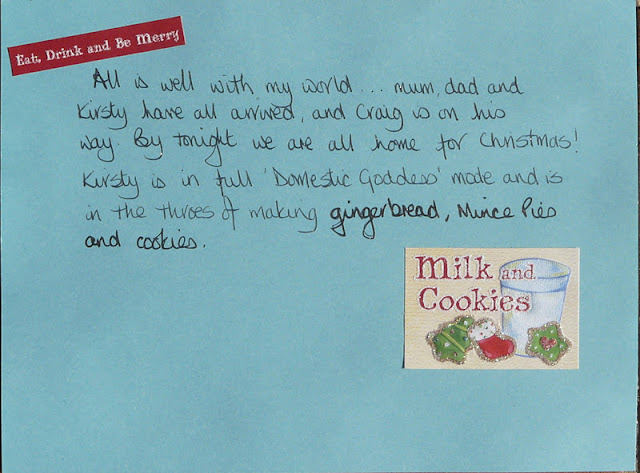 Eat, Drink and Be Merry
All is well with my world... mum, dad and
Kirsty have all arrived, and Craig is on his
way. By tonight we are all home for Christmas!
Kirsty is in full 'Domestic Goddess' mode and is
in the throes of making gingerbread, Mince Pies
and cookies.
Milk and
Cookies